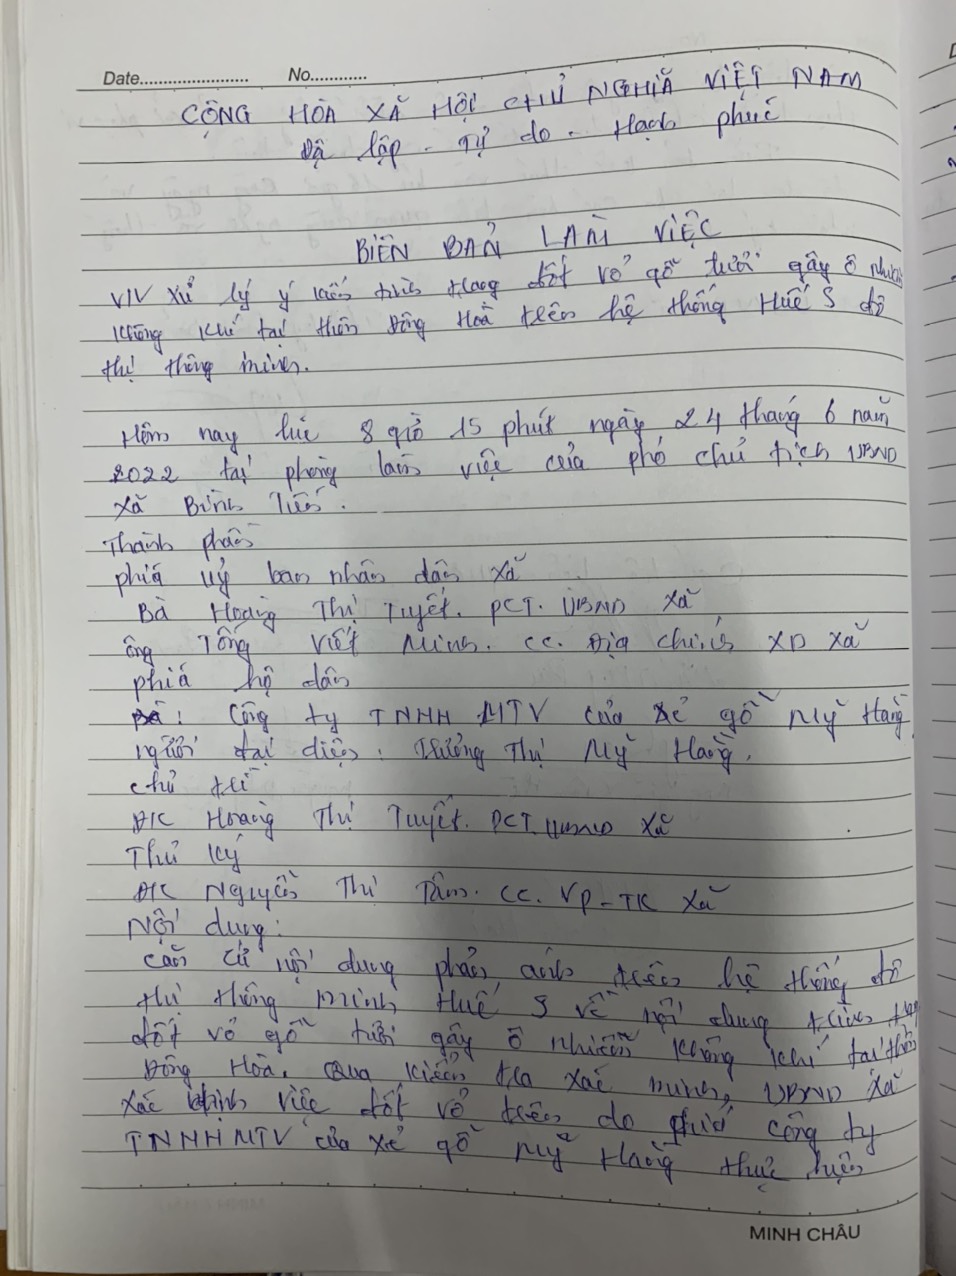 Date........................ No............
CỘNG HÒA XÃ HỘI CHỦ NGHĨA VIỆT NAM
Độ lập - Tự do - Hạnh phúc
BIÊN BẢN LÀM VIỆC
V/V Xử lý ý kiến trình trạng đốt vỏ gỗ tươi gây ô nhiễm
không khí tại thôn Đông Hoà trên hệ thống Huế S đô
thị thông minh.
Hôm nay lúc 8 giờ 15 phút ngày 24 tháng 6 năm
2022 tại phòng làm việc của phó chủ tịch UBND
xã Bình Tiến.
Thành phần
phía uỷ ban nhân dân xã
Bà Hoàng Thị Tuyết. PCT. UBND xã
ông Tống Viết Minh. CC. Địa chính XD xã
phía hộ dân
: Công ty TNHH MTV cưa xẻ gỗ Mỹ Hằng
người đại diện: Trương Thị Mỹ Hằng.
chủ trì
Đ/C Hoàng Thị Tuyết. PCT. UBND xã
Thư ký
Đ/C Nguyễn Thị Tâm. CC. VP-TK xã
Nội dung:
Căn cứ nội dung phản ánh trên hệ thống đô
thị thông minh Huế S về nội dung trình trạng
đốt vỏ gỗ tươi gây ô nhiễm không khí tại thôn
Đông Hòa. Qua kiểm tra xác minh, UBND xã
xác định việc đốt vỏ trên do phía công ty
TNHH MTV cưa xẻ gỗ Mỹ Hằng thực hiện
MINH CHÂU